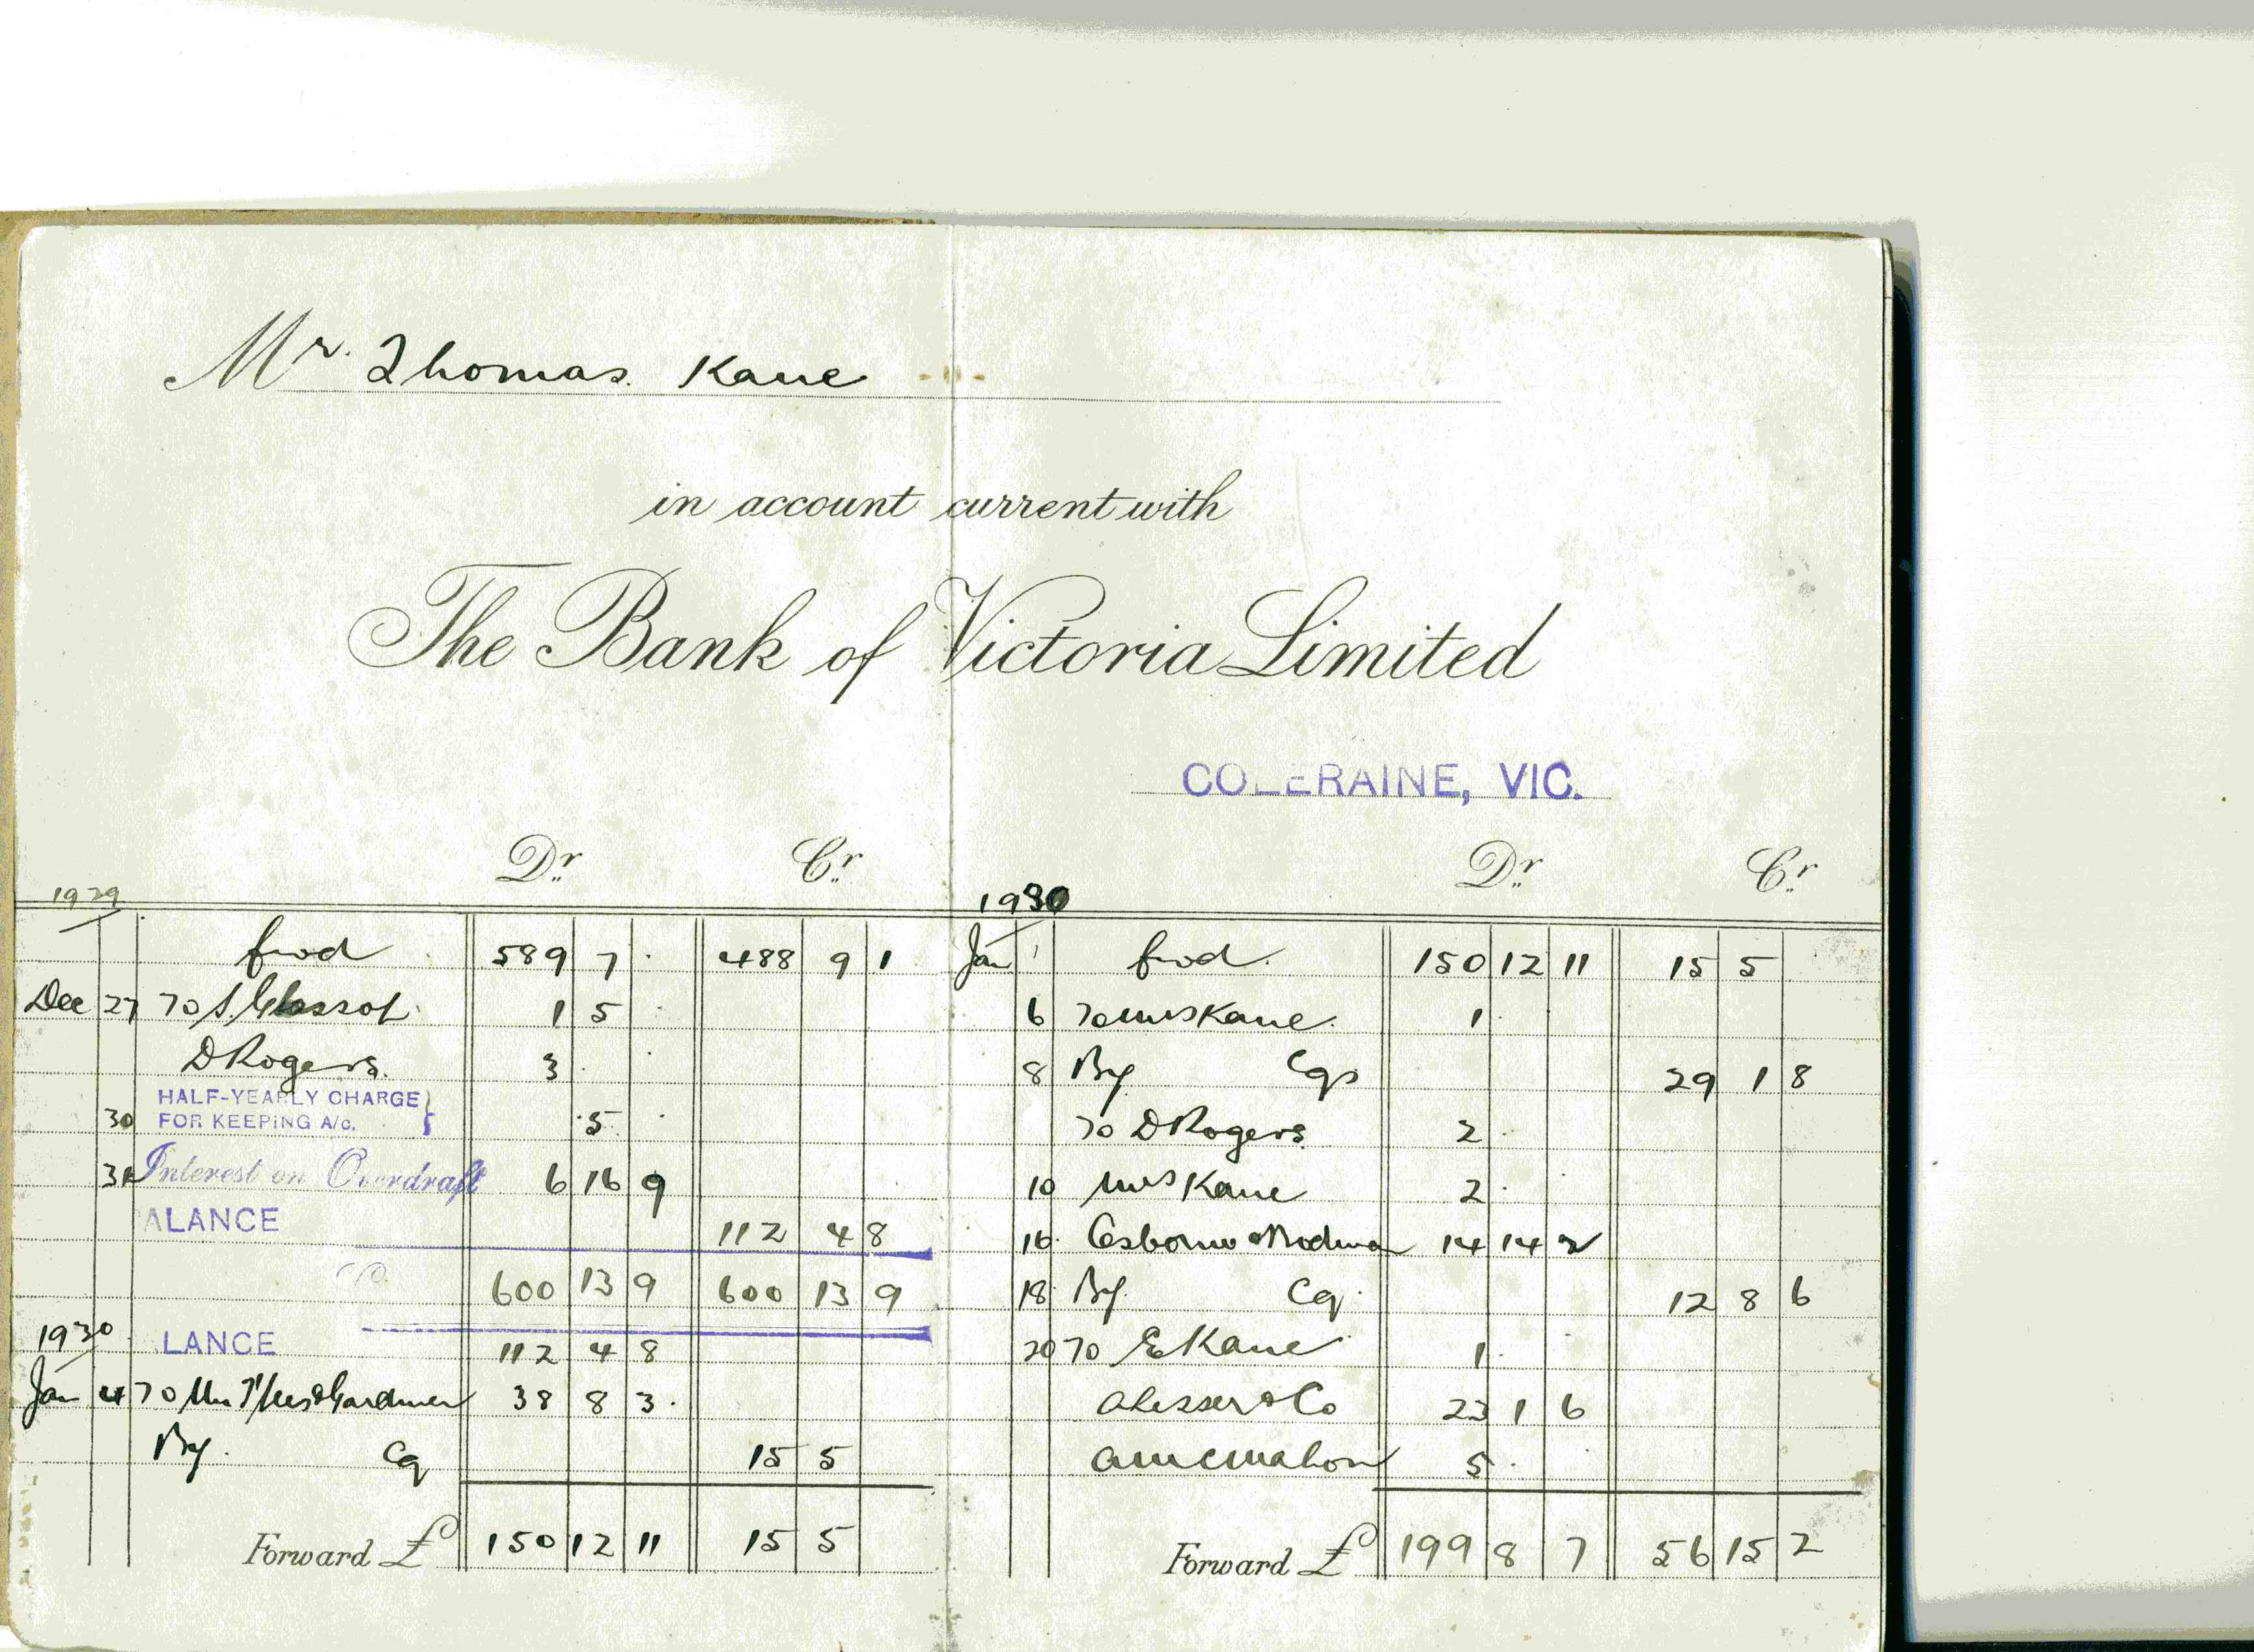 Mr. Thomas Kane
in account current with
The Bank of Victoria Limited
COLERAINE, VIC.
Dr. Cr.
1929
fwd 589 7 . 488 9 1
Dec 27 To 1 5 .
D Rogers 3 . .
HALF-YEARLY CHARGE
30 FOR KEEPING A/c. } 5 .
31 Interest on Overdraft 6 16 9
ALANCE 112 4 8
600 13 9 600 13 9
1930 LANCE 112 4 8
Jan 4 To 38 8 3
By Cq 15 5
Forward £ 150 12 11 15 5
Dr. Cr.
1930
Jan 1 fwd. 150 12 11 15 5
6 To Mrs Kane. 1 .
8 By Cqs 29 1 8
To D Rogers 2 .
10 Mrs Kane 2 .
16 Osborne & 14 14 2
18 By. Cq. 12 8 6
20 To E Kane 1 .
A Lesser & Co 23 1 6
A McMahon 5 .
Forward £ 199 8 7 56 15 2